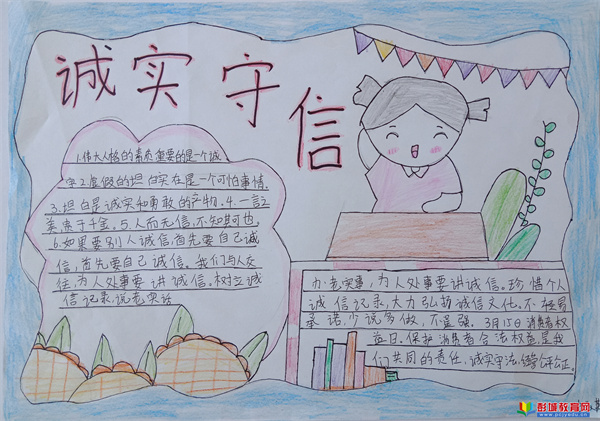 诚实守信
1.伟大人格的素质重要的是一个诚
字2.虚假的坦白实在是一个可怕事情.
3.坦白是诚实和勇敢的产物.4.一言之
美,贵于千金.5.人而无信,不知其可也.
6.如果要别人诚信,首先要自己诚
信,首先要自己诚信.我们与人交
往,为人处事要讲诚信.树立诚
信记录,说老实话
办老实事,为人处事要讲诚信.珍惜个人
诚信记录,大力弘扬诚信文化.不轻易
承诺,少说多做,不逞强.3月15日消费者权
益日.保护消费者合法权益是我
们共同的责任.诚实守法,公平公正.
彭城教育网
www.pcjyw.com